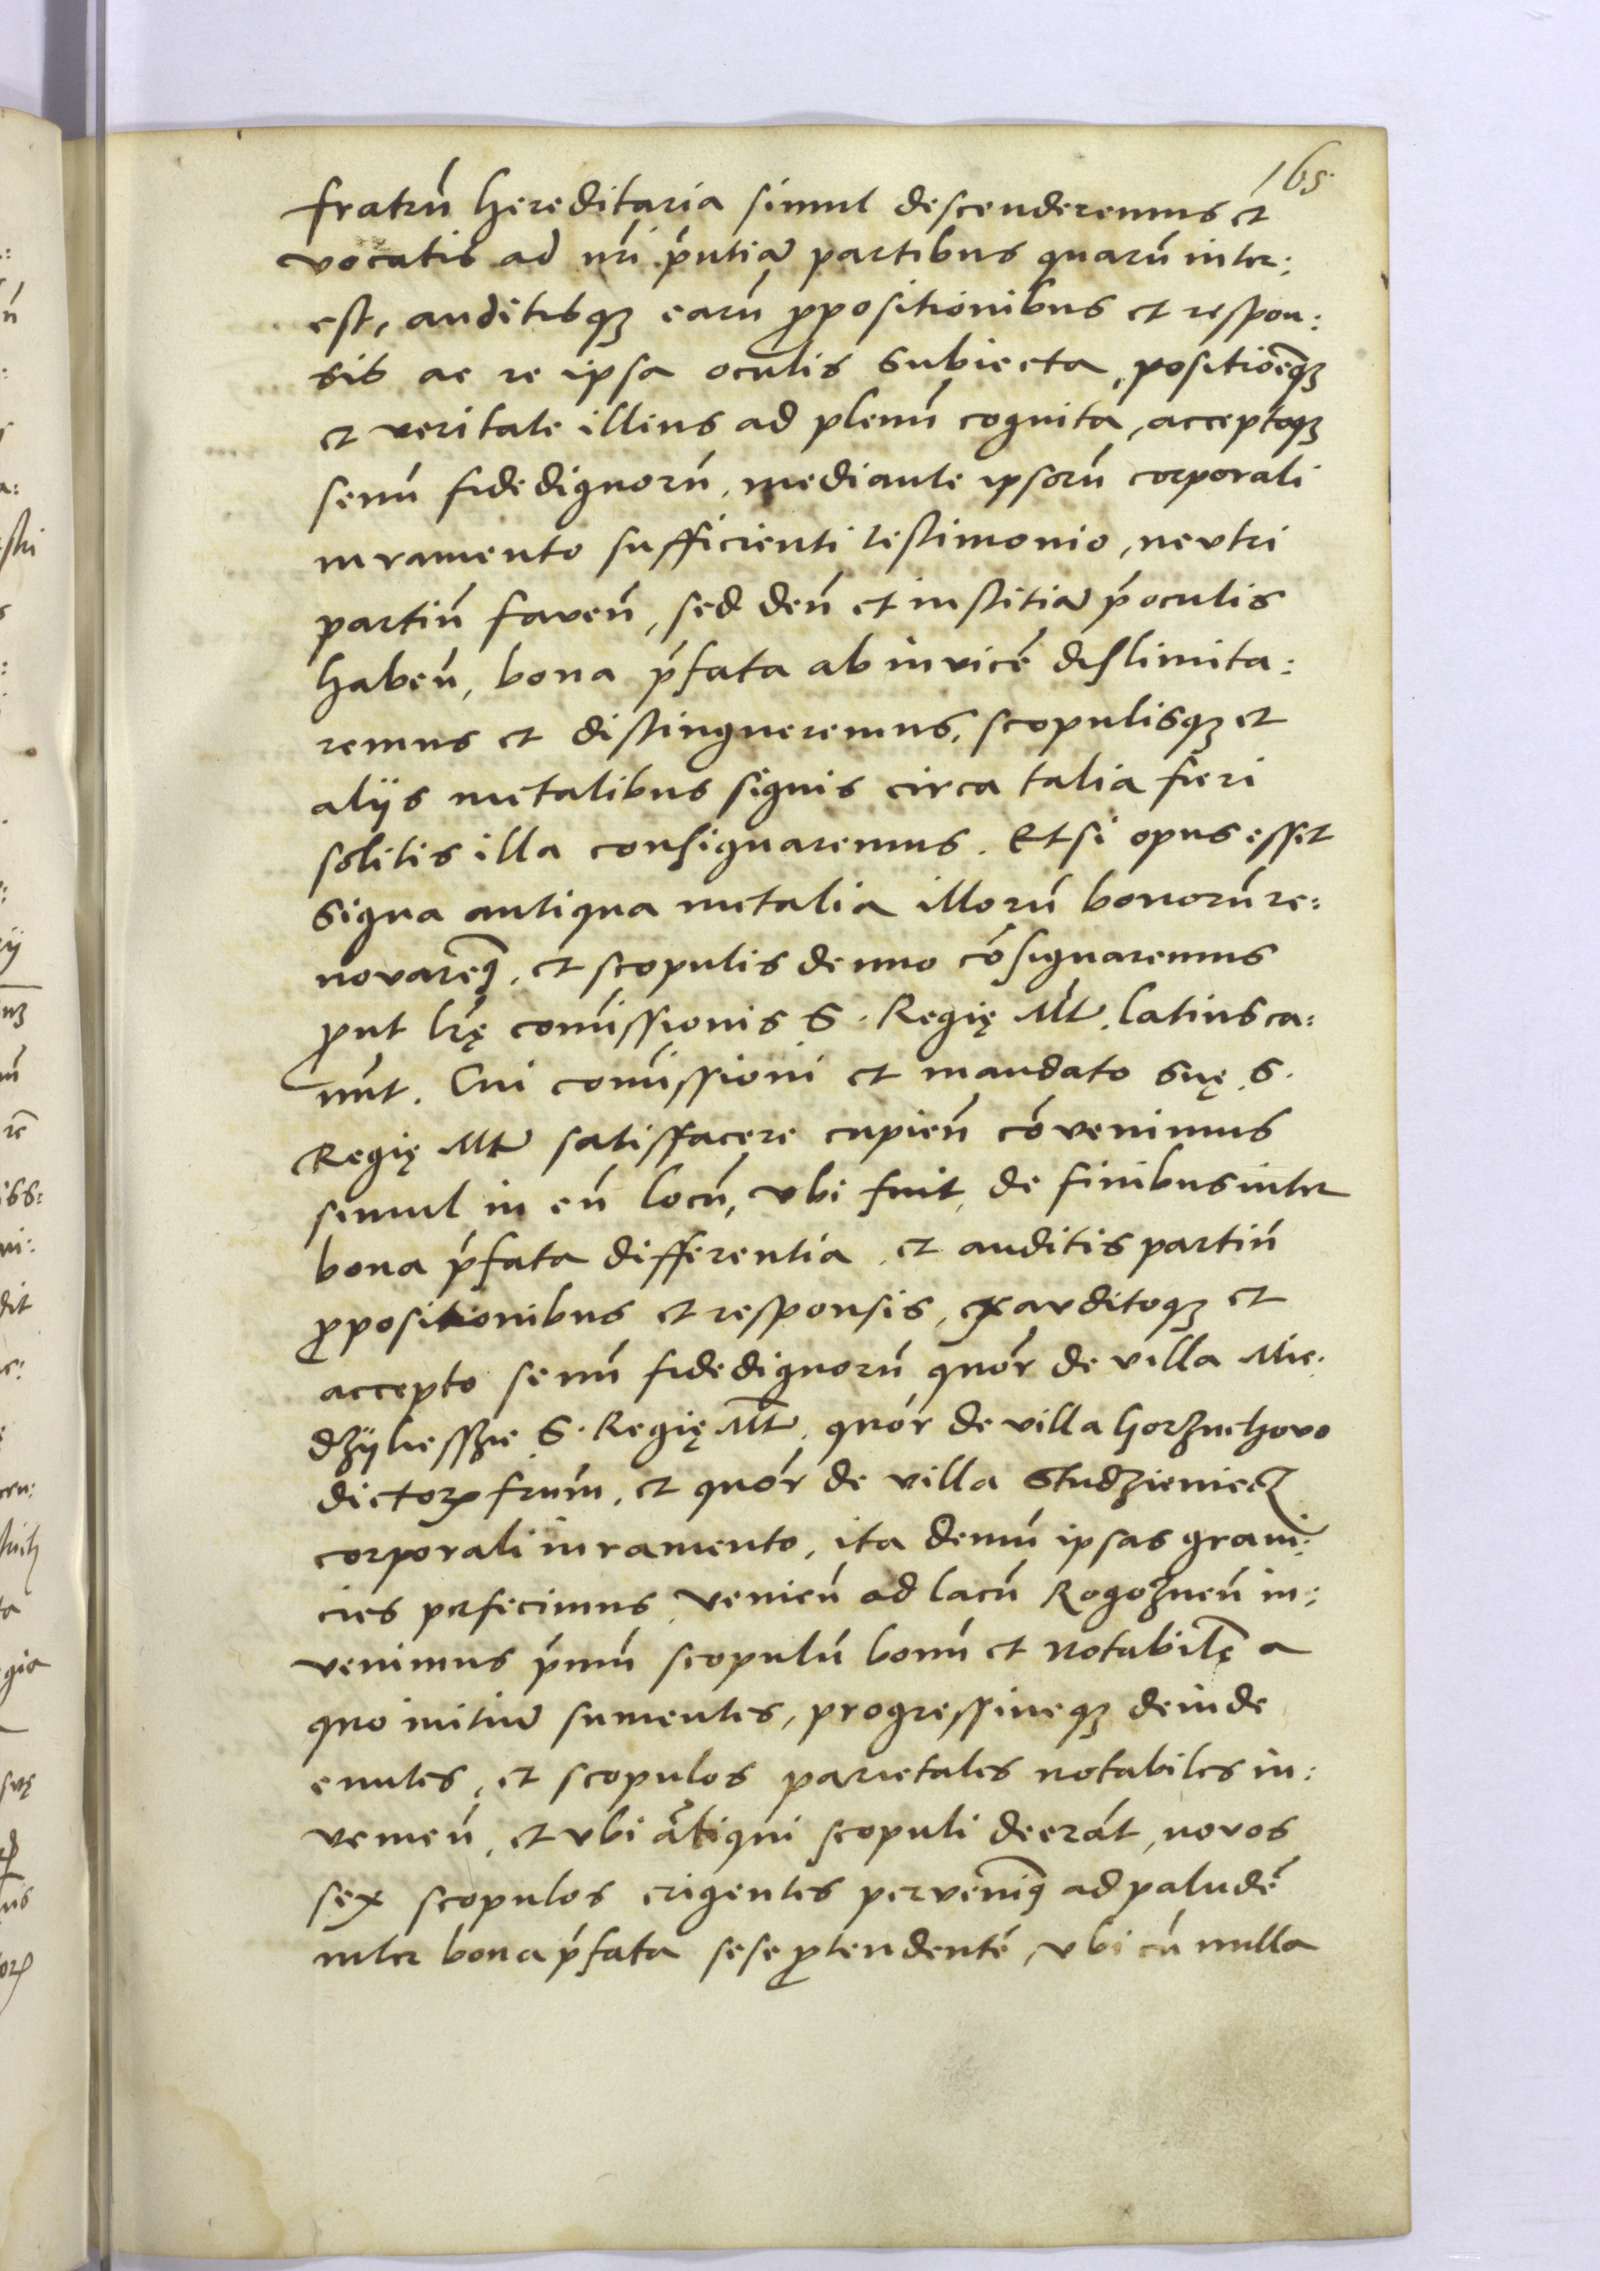 165.
fratrū hereditaria simul descenderemus et
vocatis ad nr̄i p̄ntiā partibus quarū inter:
est, auditisqꝫ earū ꝓpositionibus et respon:
sis ac re ipsa oculis subiecta, positiōeqꝫ
et veritate illius ad plenū cognita, acceptoqꝫ
senū fidedignorū, mediante ipsorū corporali
iuramento sufficienti testimonio, neutri
partiū faveñ, sed deū et iustitiā p̄ oculis
habeñ, bona p̄fata ab invicē dislimita:
remus et distingueremus, scopulisqꝫ et
alijs metalibus signis circa talia fieri
solitis illa consignaremus. Et si opus esset
signa antiqua metalia illorū bonorū re:
novarem⁹, et scopulis denuo cōsignaremus
ꝓut lr̄ę com̄issionis S. Regię Mt̄. latius ca:
nūt. Cui com̄issioni et mandato suę S.
Regię Mt̄ satisfacere cupieñ cōvenimus
simul in eū locū, vbi fuit de finibus inter
bona p̄fata differentia, et auditis partiū
ꝓpositionibus et responsis, exauditoqꝫ et
accepto senū fidedignorū quōr de villa Mie:
dzÿliessie S. Regię Mt̄. quōr de villa Horznchovo
dictoꝝ frūm, et quōr de villa Studzieniecz
corporali iuramento, ita demū ipsas grani:
cies perfecimus, venieñ ad lacū Rogozneñ in:
venimus p̄mū scopulū bonū et notabilē a
quo initiū sumentes, progressiueqꝫ deinde
euntes, et scopulos parietales notabiles in:
venieñ, et vbi ātiqui scopuli deerāt, novos
sex scopulos erigentes pervenim⁹ ad paludē
inter bona p̄fata sese ꝓtendentē, vbi cū nulla